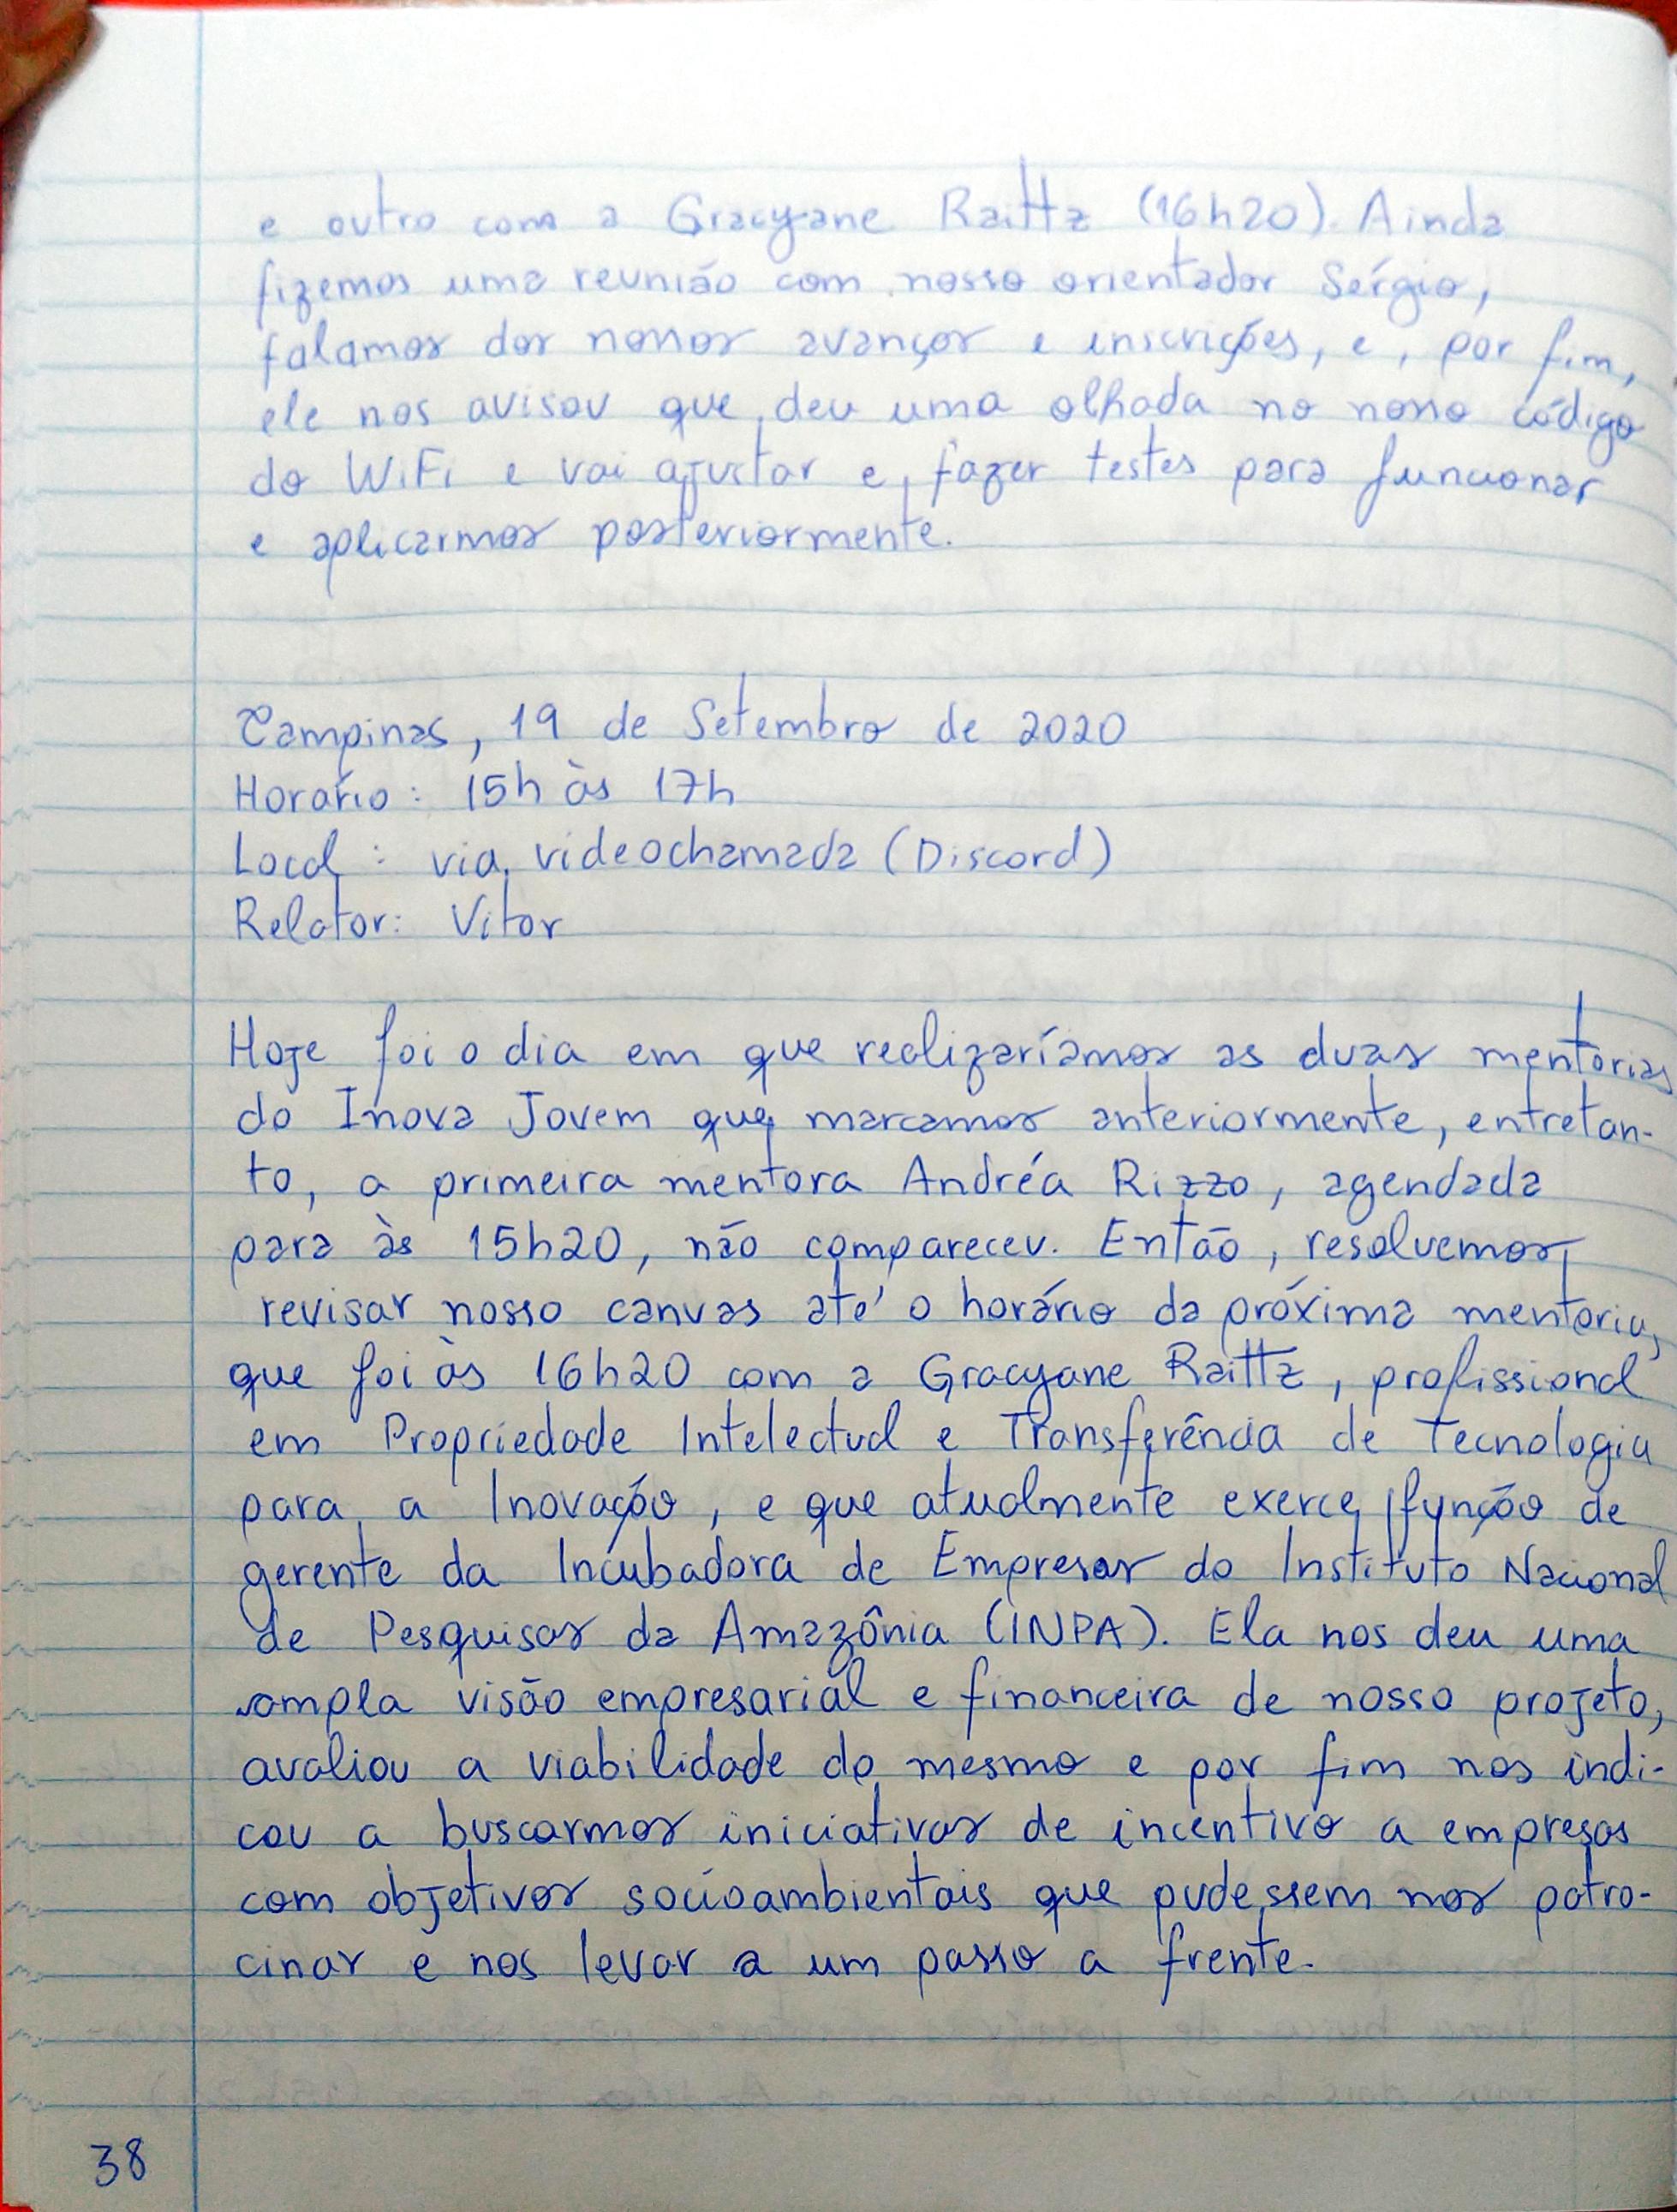 e outro com a Gracyane Raittz (16h20). Ainda
fizemos uma reunião com nosso orientador Sérgio,
falamos dos nossos avanços e inscrições, e, por fim,
ele nos avisou que deu uma olhada no nosso código
do WiFi e vai ajustar e fazer testes para funcionar
e aplicarmos posteriormente.
Campinas, 19 de Setembro de 2020
Horário: 15h às 17h
Local: via videochamada (Discord)
Relator: Vitor
Hoje foi o dia em que realizaríamos as duas mentorias
do Inova Jovem que marcamos anteriormente, entretan-
to, a primeira mentora Andréa Rizzo, agendada
para às 15h20, não compareceu. Então, resolvemos
revisar nosso canvas até o horário da próxima mentoria,
que foi às 16h20 com a Gracyane Raittz, profissional
em Propriedade Intelectual e Transferência de Tecnologia
para a Inovação, e que atualmente exerce função de
gerente da Incubadora de Empresas do Instituto Nacional
de Pesquisas da Amazônia (INPA). Ela nos deu uma
ampla visão empresarial e financeira de nosso projeto,
avaliou a viabilidade do mesmo e por fim nos indi-
cou a buscarmos iniciativas de incentivo a empresas
com objetivos socioambientais que pudessem nos patro-
cinar e nos levar a um passo a frente.
38